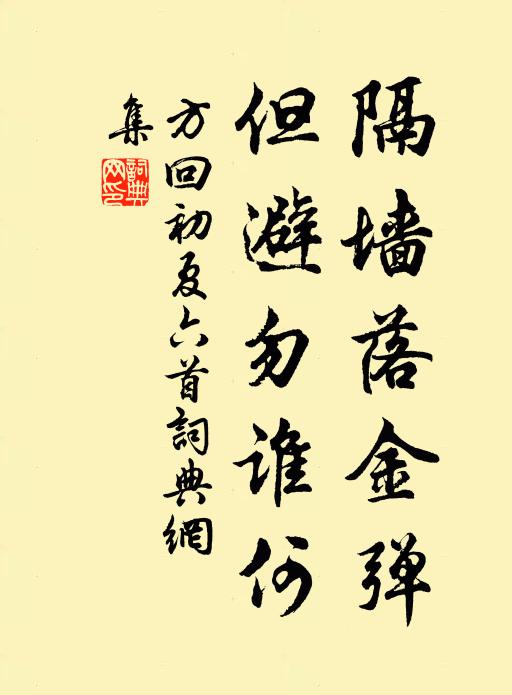 隔墙落金弹
但避勿谁何
方回初夏六首詞典網
集
詞典网印